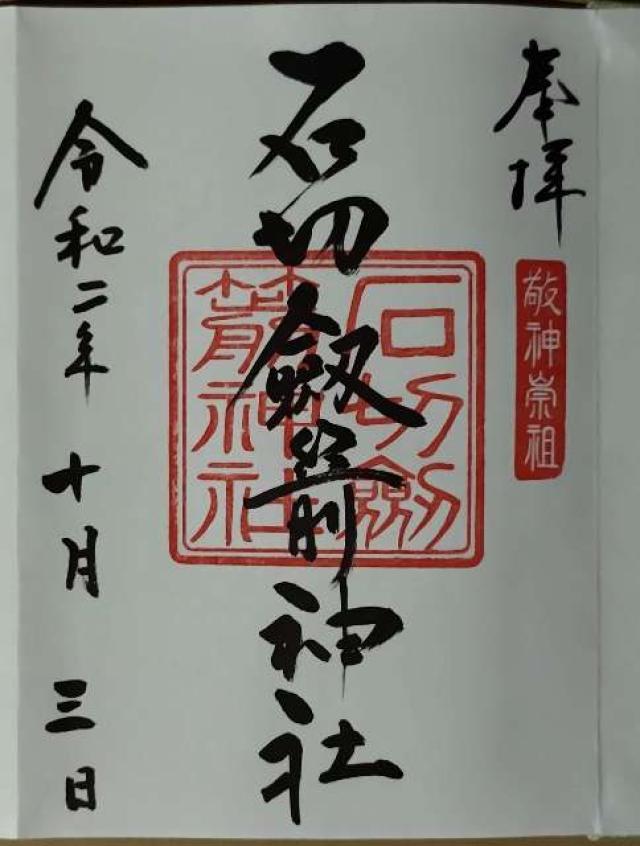 奉拝
敬神崇祖
石切劔箭神社
石切劔
箭神社
令和二年 十月 三日